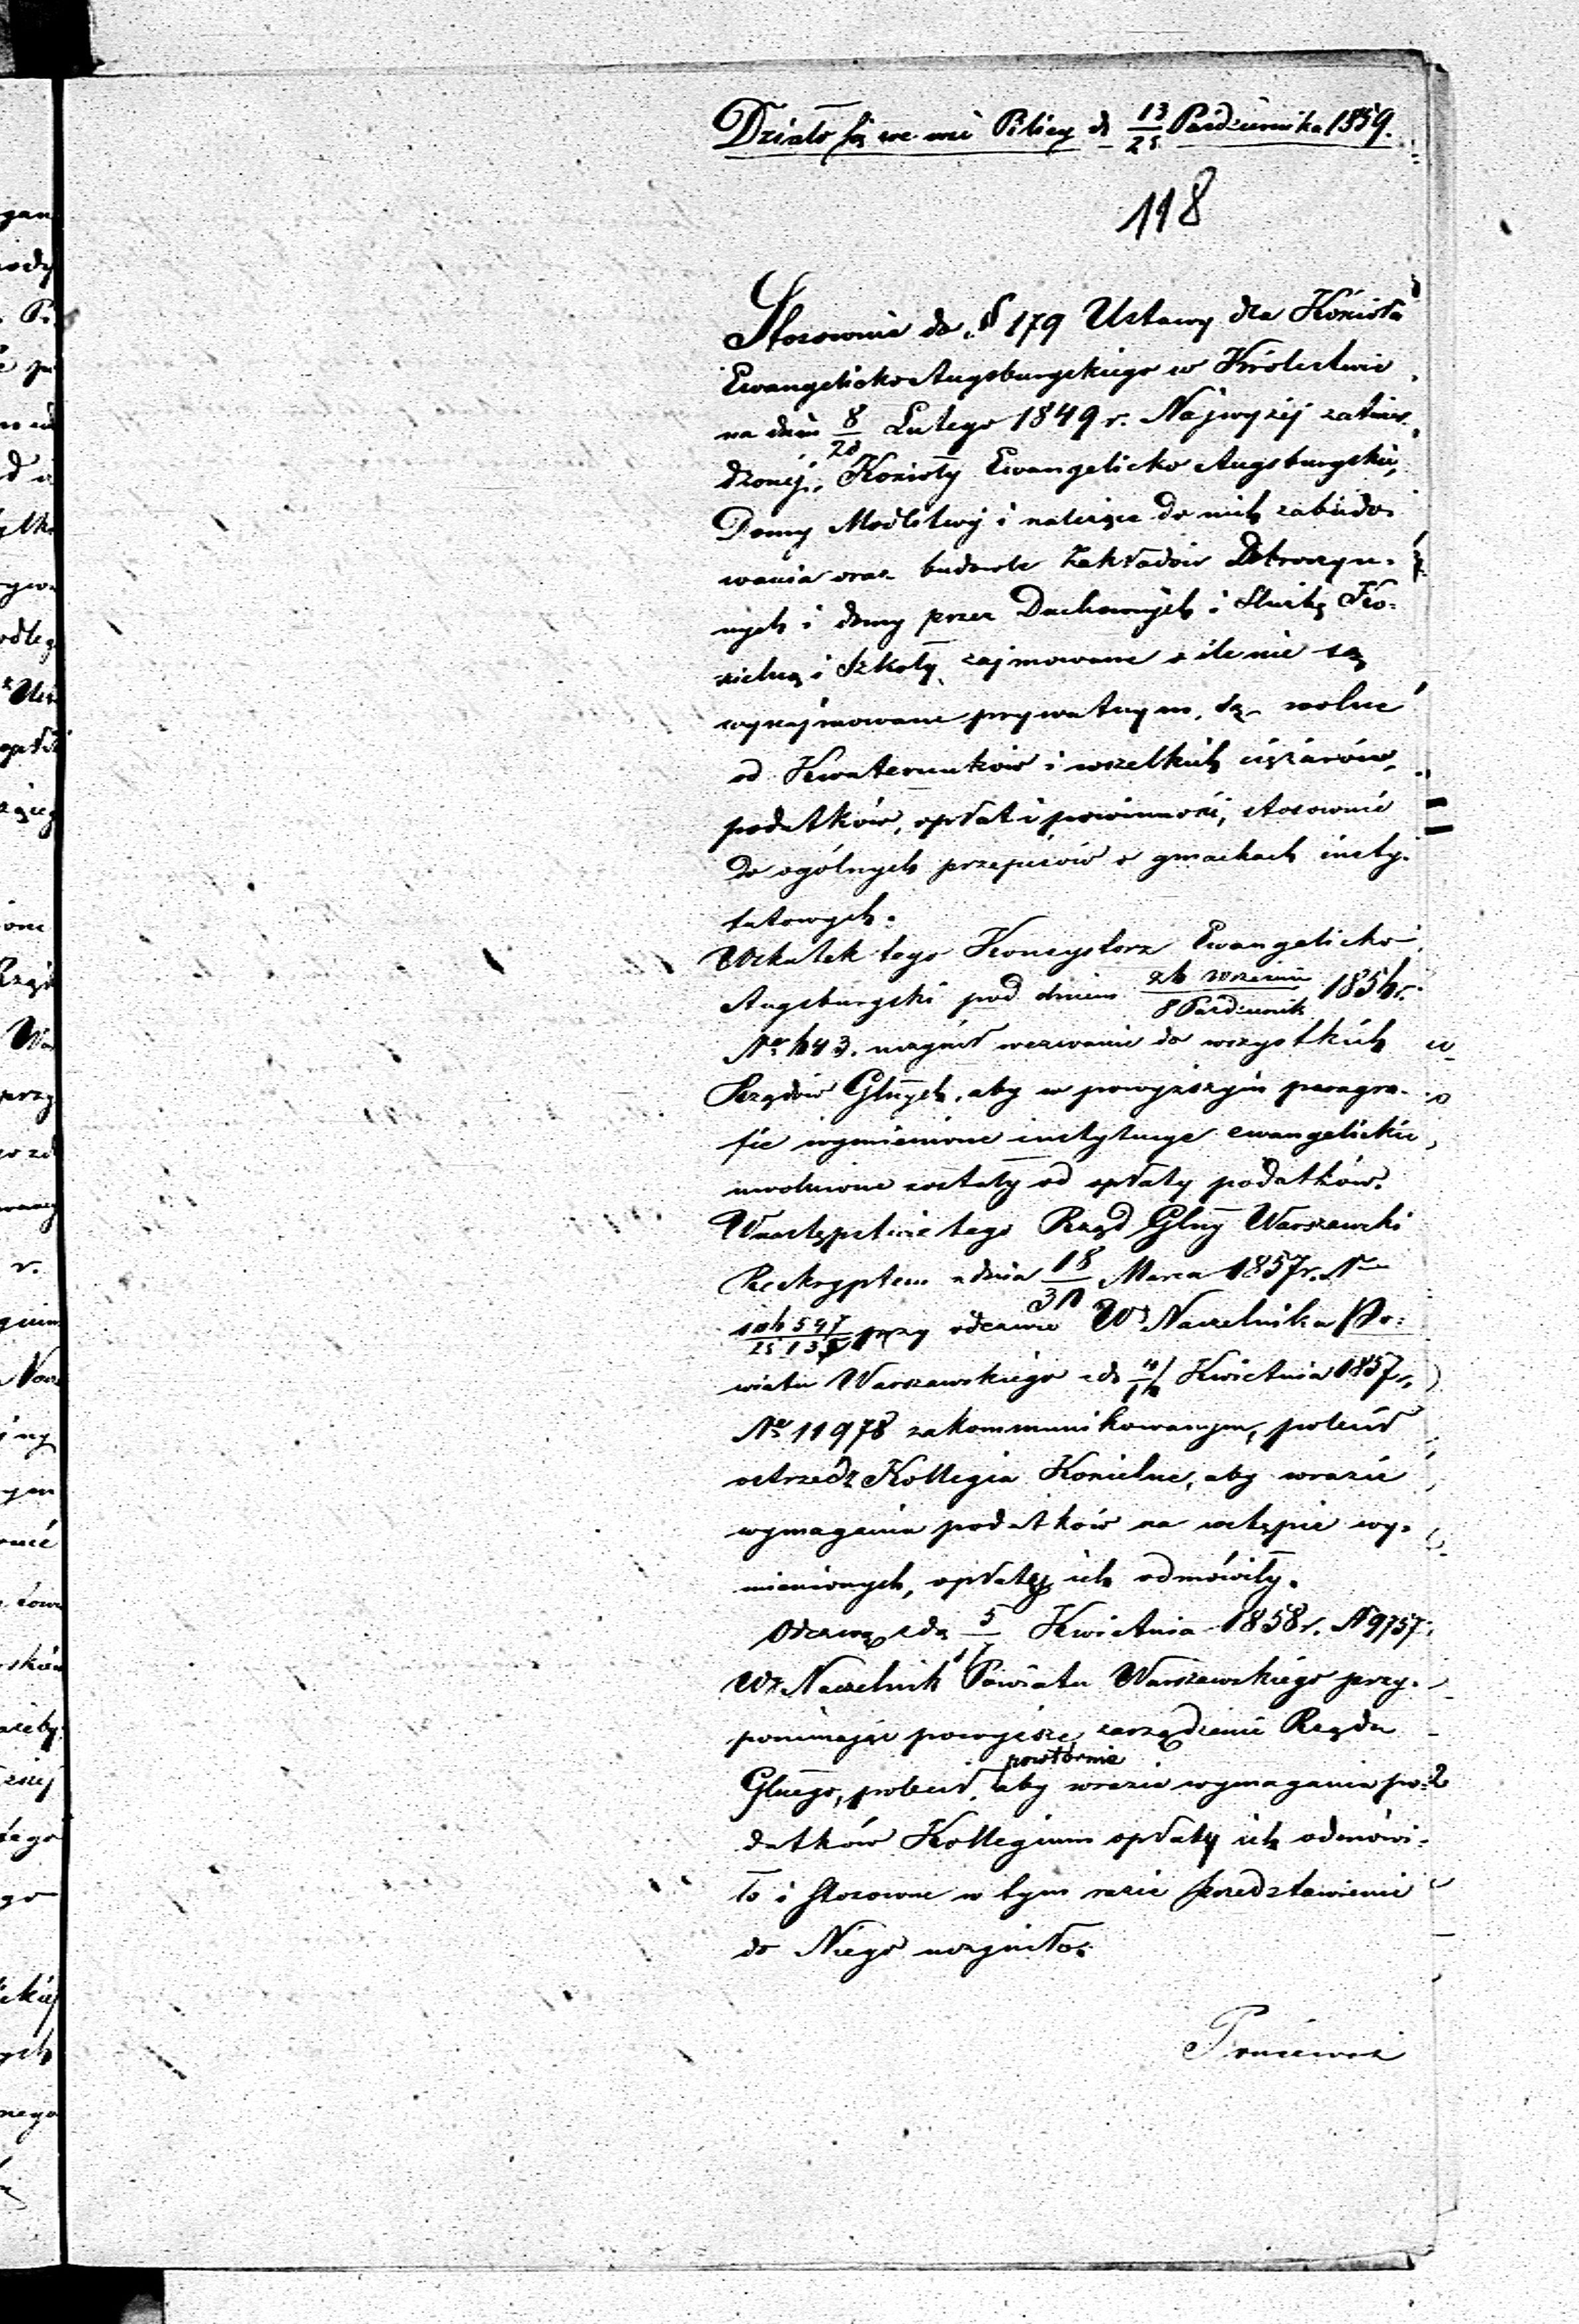 Działo się we wsi Pilicy d 13/25 Października 1859.
118
Stosownie do § 179 Ustawy dla Kościoła
Ewangelicko Augsburgskiego w Królestwie
na dniu 8/20 Lutego 1849 r. Najwyżéj zatwier-
dzonéj, Kościoły Ewangelicko Augsburgskie,
Domy Modlitwy i należące do nich zabudo-
wania oraz budowle Zakładów Dobroczyn-
nych i domy przez Duchownych i Służbę Ko-
ścielną i Szkoły zajmowane o ile nie są
wynajmowane prywatnym, są wolne
od Kwaterunków i wszelkich ciężarów,
podatków, opłat i powinności, stosownie
do ogólnych przepisów o gmachach insty-
tutowych.
Wskutek tego Konsystorz Ewangelicko
Augsburgski pod dniem 26 Września/8 Październik 1856 r.
№ 643. uczynił wezwanie do wszystkich
Rządów Glnych, aby w powyższym paragra-
fie wymienione instytucye ewangelickie
uwolnione zostały od opłaty podatków.
W następstwie tego Rząd Glny Warszawski
Reskryptem z dnia 18/30 Marca 1857 r. N
przy odezwie W Naczelnika Po-
wiatu Warszawskiego z d 4/16 Kwietnia 1857 r.
№ 11978 zakommunikowanym, polecił
ostrzedz Kollegia Kościelne, aby w razie
wymagania podatków na wstępie wy-
mienionych, opłatę ich odmówiły.
Odezwą z d 5/17 Kwietnia 1858 r. N 9757
W Naczelnik Powiatu Warszawskiego przy-
pominając powyższe zarządzenie Rządu
Glnego, polecił powtórnie aby w razie wymagania po-
datków Kollegium opłaty ich odmówi-
ło i stosowne w tym razie przedstawienie
do Niego uczyniło.